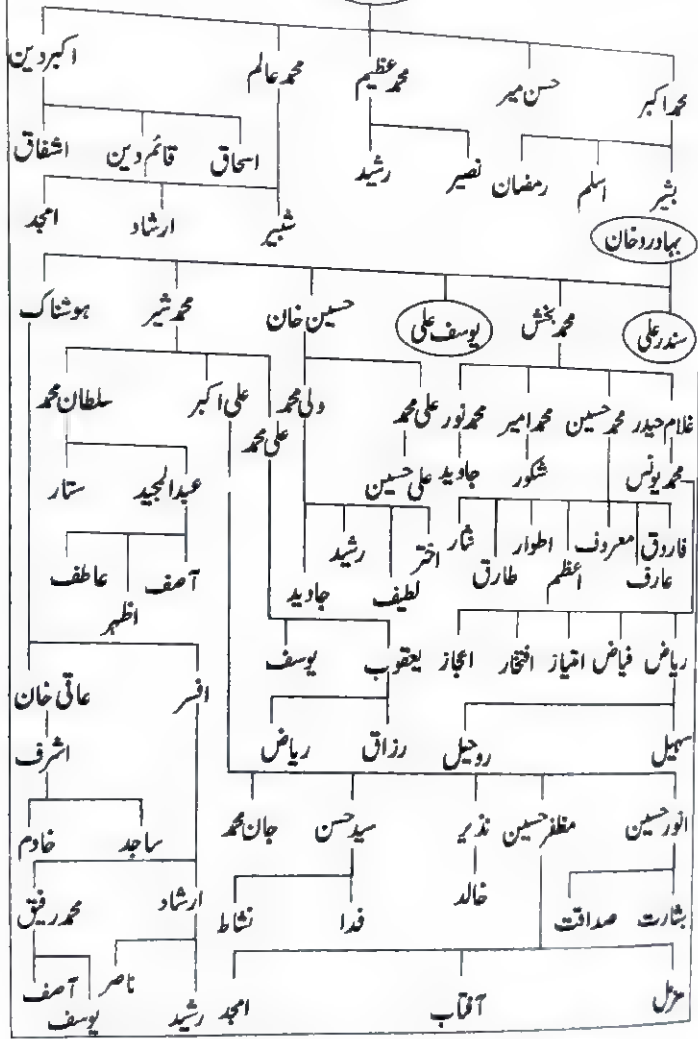 محمد اکبر حسن میر محمد عظیم محمد عالم اکبر دین
بشیر اسلم رمضان نصیر رشید اسحاق قائم دین اشفاق
شبیر ارشاد امجد
بہادرو خان
سندر علی محمد بخش یوسف علی حسین خان محمد شیر ہوشناک
غلام حیدر محمد حسین محمد امیر محمد نور علی محمد ولی محمد علی محمد علی اکبر سلطان محمد
محمد یونس شکور جاوید علی حسین عبدالمجید ستار
فاروق عارف معروف اعظم اطوار طارق نثار اختر لطیف رشید جاوید آصف اظہر عاطف
ریاض فیاض امتیاز افتخار اعجاز یعقوب یوسف افسر عاقی خان
سہیل روحیل رزاق ریاض اشرف
انور حسین مظفر حسین نذیر سید حسن جان محمد ساجد خادم
بشارت صداقت خالد فدا نشاط ارشاد محمد رفیق
مزمل آفتاب امجد رشید ناصر یوسف آصف